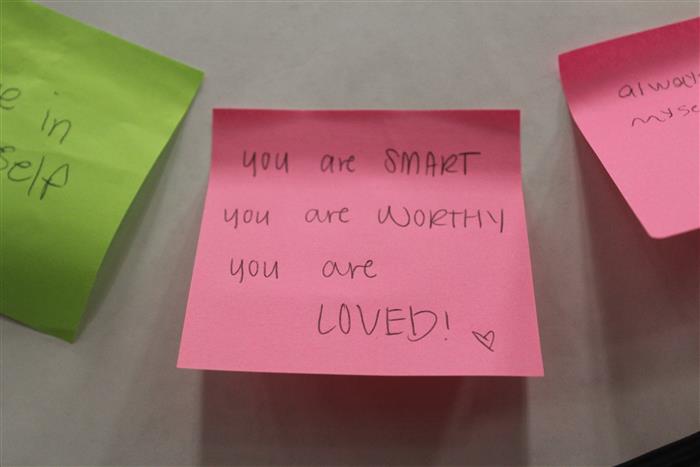 e in
self
you are SMART
you are WORTHY
you are
LOVED!
alway
myse